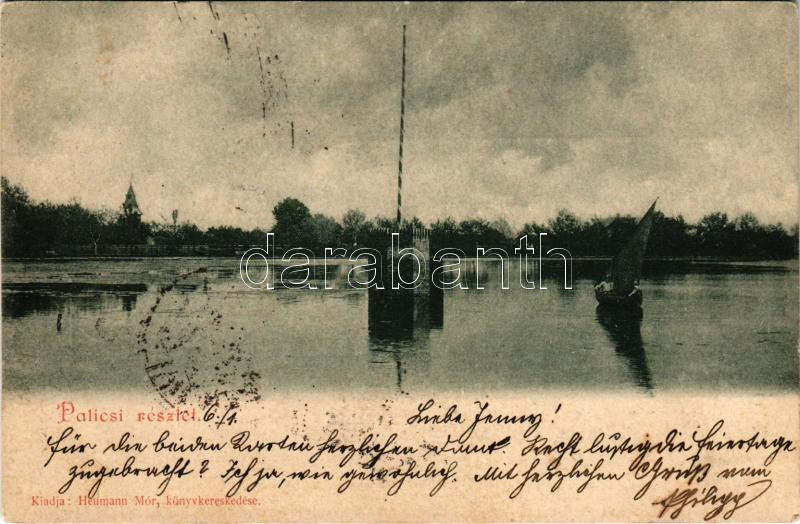 darabanth
Palicsi részlet. 6/1.
Liebe Jenny!
für die beiden Karten herzlichen Dank. Recht lustig die Feiertage
zugebracht? Ich ja, wie gewöhnlich. Mit herzlichen Gruß vom
Philipp
Kiadja: Heumann Mór, könyvkereskedése.